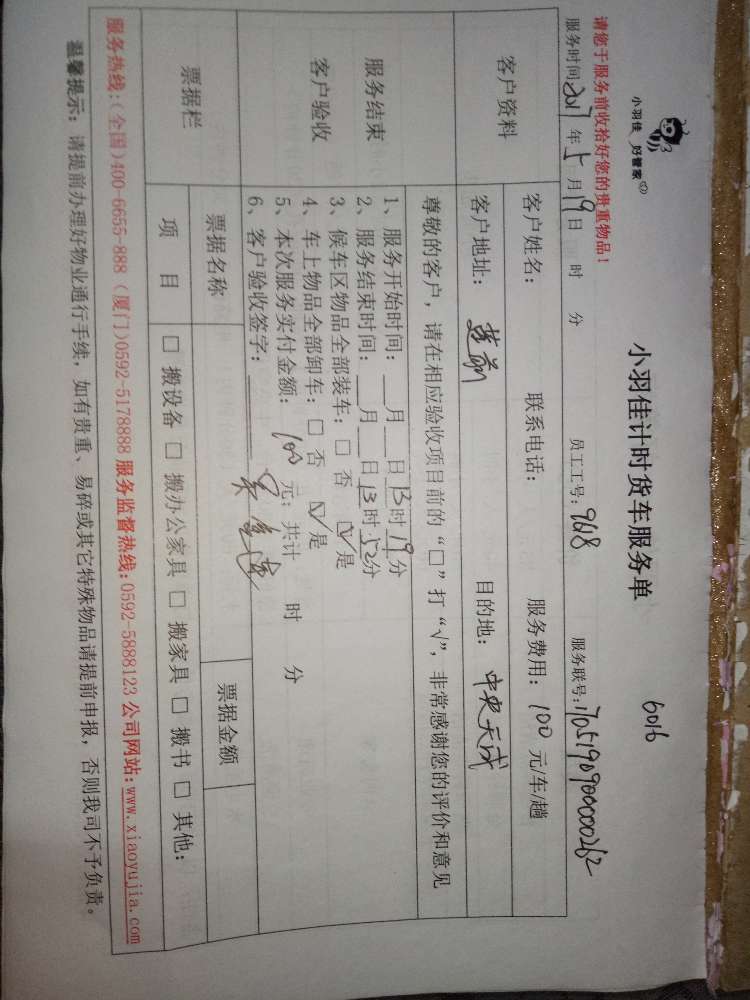 小羽佳 好管家
小羽佳计时货车服务单
6016
请您于服务前收拾好您的贵重物品!
服务时间2017年5月19日 时 分 员工工号:9618 服务联号:170519090000262
客户资料
客户姓名: 联系电话: 服务费用:100元/车/趟
客户地址: 莲前 目的地:中央天成
服务结束
客户验收
尊敬的客户,请在相应验收项目前的“□”打“√”,非常感谢您的评价和意见
1、服务开始时间:__月__日13时19分
2、服务结束时间:__月__日13时52分
3、候车区物品全部装车:□ 否 ☑ 是
4、车上物品全部卸车:□ 否 ☑ 是
5、本次服务实付金额: 100 元;共计 时 分
6、客户验收签字:
票据栏
票据名称 票据金额
项 目 □ 搬设备 □ 搬办公家具 □ 搬家具 □ 搬书 □ 其他:
服务热线:(全国)400-6655-888 (厦门)0592-5178888 服务监督热线:0592-5888123 公司网站:www.xiaoyujia.com
温馨提示:请提前办理好物业通行手续,如有贵重、易碎或其它特殊物品请提前申报,否则我司不予负责。